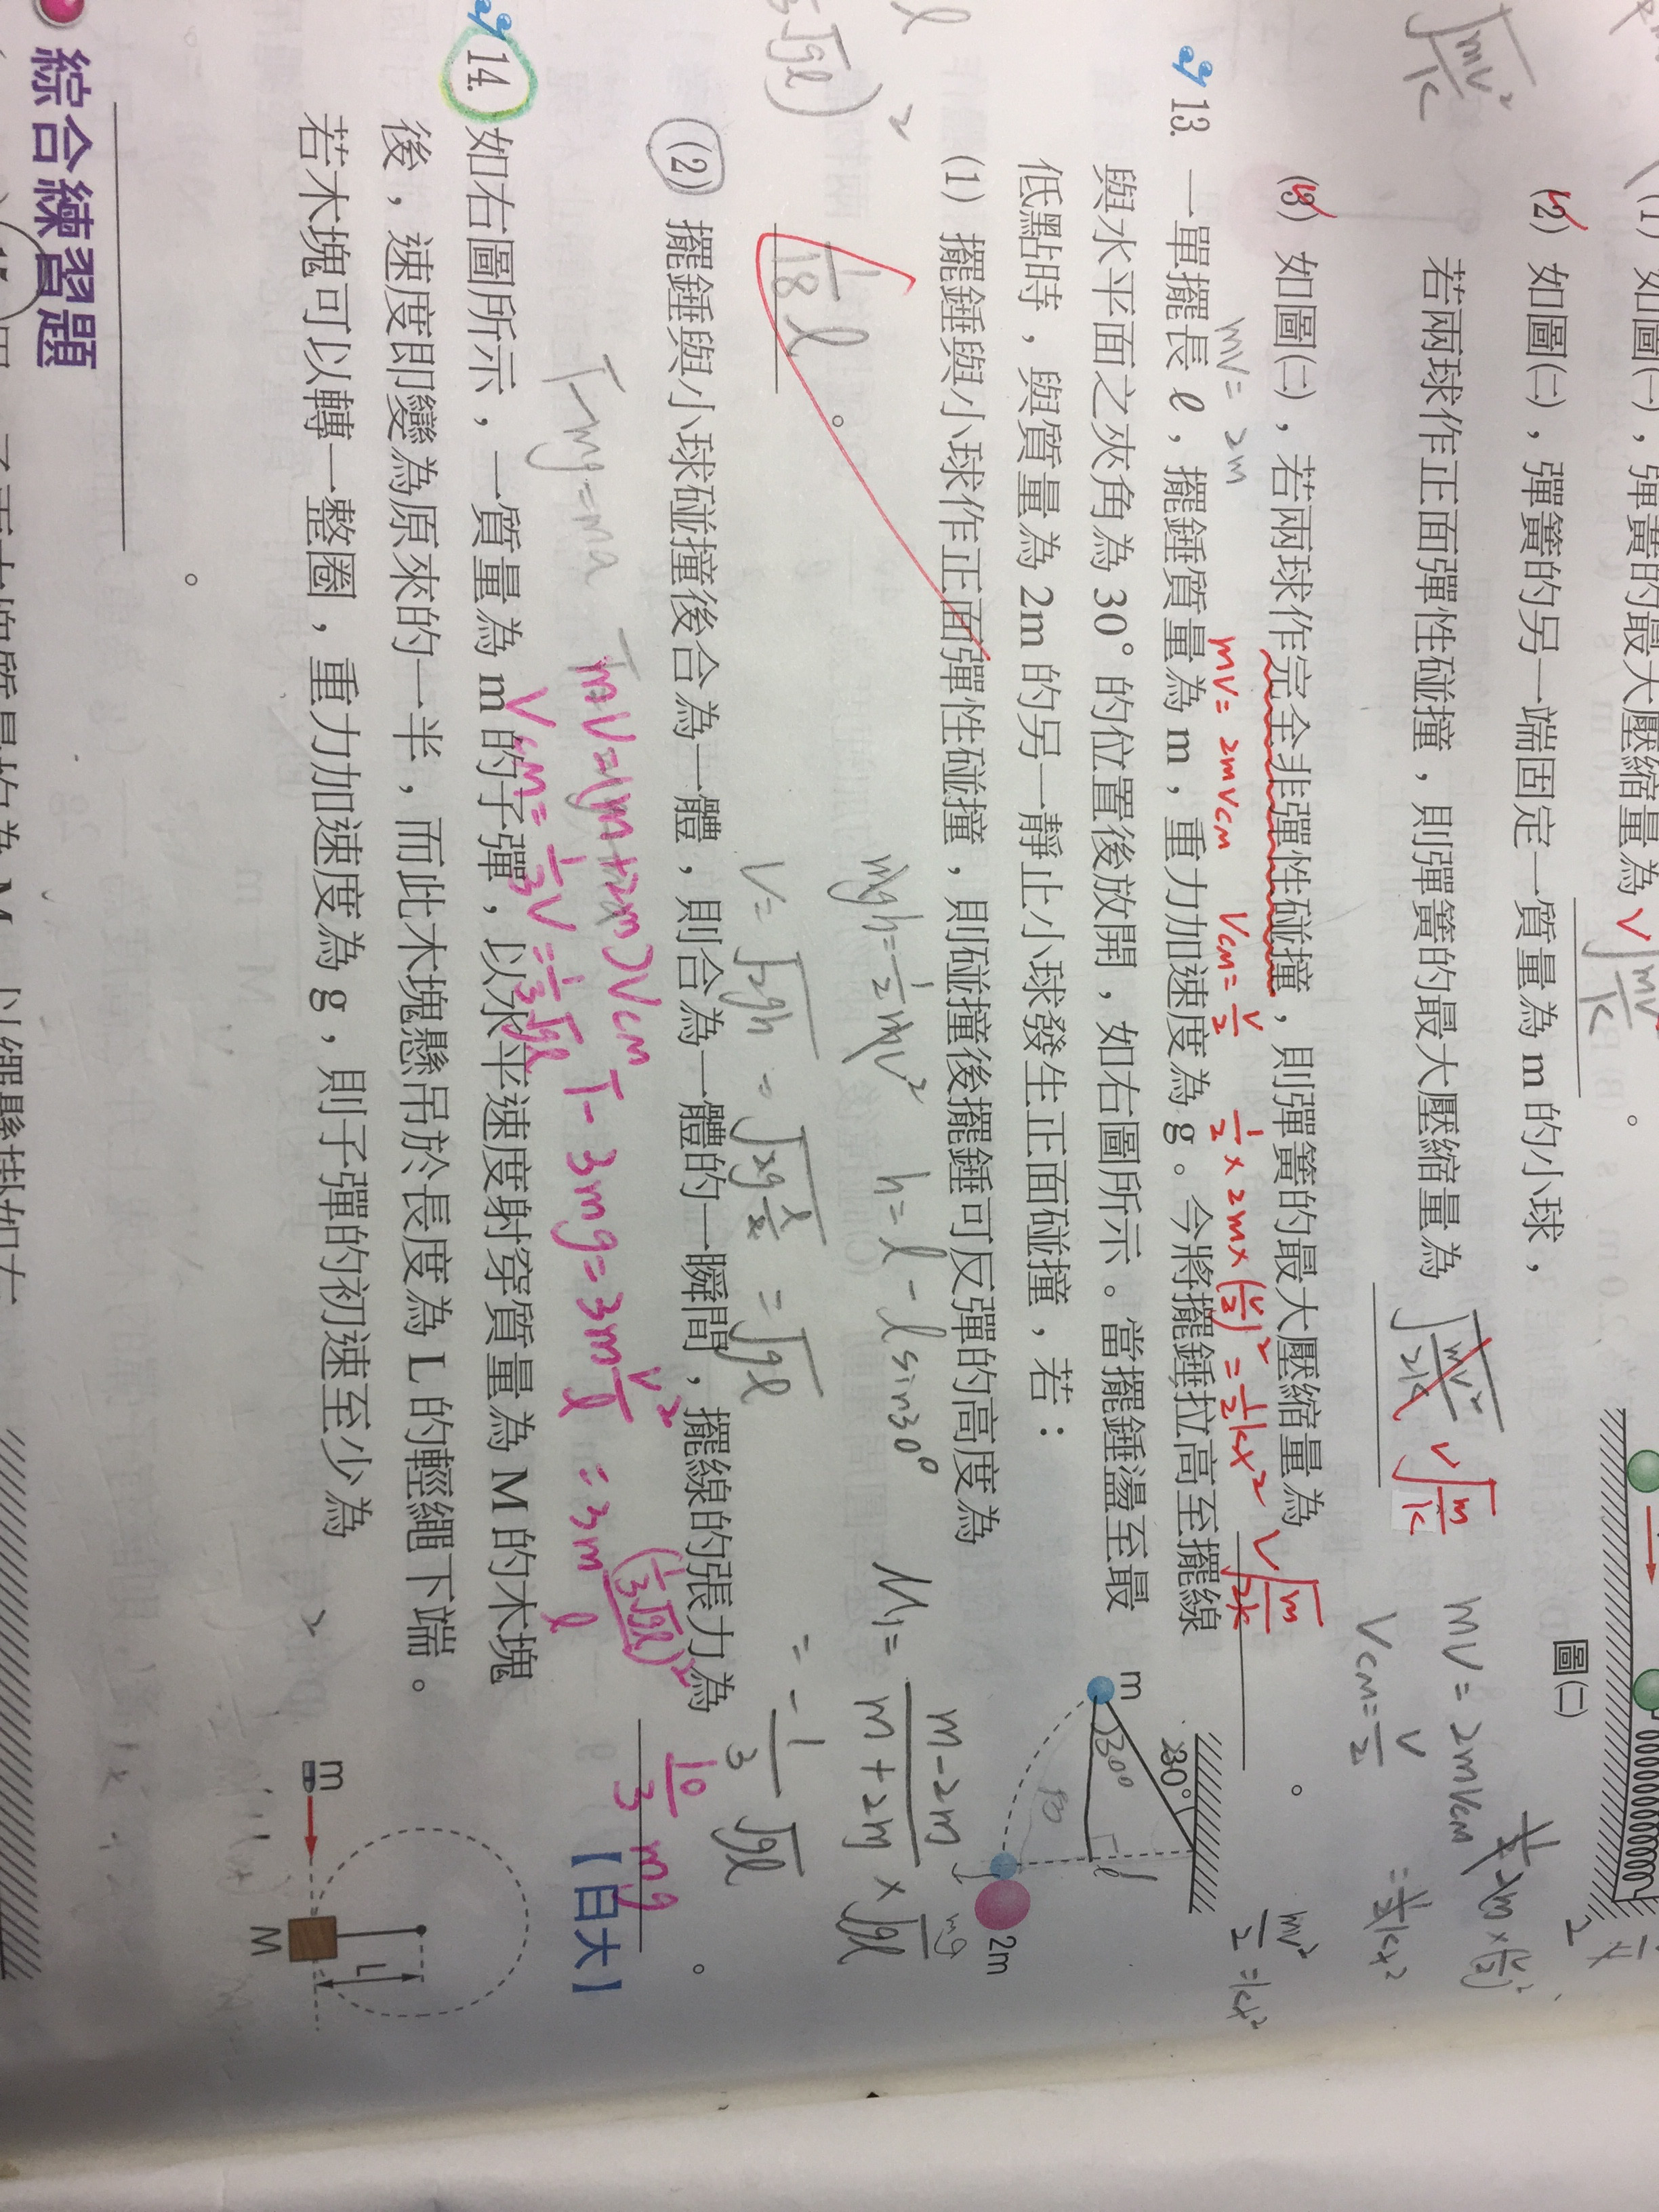 (1) 如圖㈠，彈簧的最大壓縮量為
(2) 如圖㈡，彈簧的另一端固定一質量為 m 的小球，
若兩球作正面彈性碰撞，則彈簧的最大壓縮量為
圖㈡
mv = 2mVcm
Vcm = v/2
(3) 如圖㈡，若兩球作完全非彈性碰撞，則彈簧的最大壓縮量為 v√(m/2k) 。
mv = 2m
mv = 2mvcm Vcm = v/2 1/2 × 2m × (v/2)² = 1/2 kx²
mv²/2 = kx²
13. 一單擺擺長 ℓ，擺錘質量為 m，重力加速度為 g。今將擺錘拉高至擺線
與水平面之夾角為 30° 的位置後放開，如右圖所示。當擺錘盪至最
低點時，與質量為 2m 的另一靜止小球發生正面碰撞，若：
30°
m
30°
2m
(1) 擺錘與小球作正面彈性碰撞，則碰撞後擺錘可反彈的高度為
1/18 l 。
mgh = 1/2 mv² h = l - l sin30°
V = √2gh = = √gl
m-2m / m+2m × √gl
= -1/3 √gl
(2) 擺錘與小球碰撞後合為一體，則合為一體的一瞬間，擺線的張力為
10/3 mg 。
【日大】
T-mg = ma
mV = (m+2m)Vcm T - 3mg = 3m v²/l = 3m (1/3 √gl)²/l
Vcm = 1/3 V = 1/3 √gl
14. 如右圖所示，一質量為 m 的子彈，以水平速度射穿質量為 M 的木塊
後，速度即變為原來的一半，而此木塊懸吊於長度為 L 的輕繩下端。
若木塊可以轉一整圈，重力加速度為 g，則子彈的初速至少為
。
m
L
M
綜合練習題